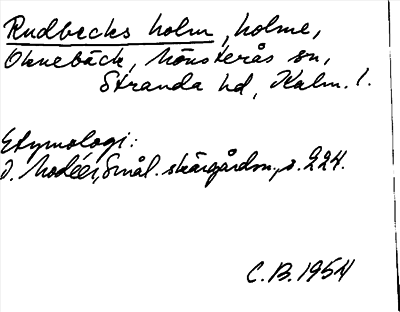 Rudbecks holm, holme,
Oknebäck, Mönsterås sn,
Stranda hd, Kalm. l.
Etymologi:
I. Modéer, Smål. skärgårdsn., s. 224.
C.B. 1954